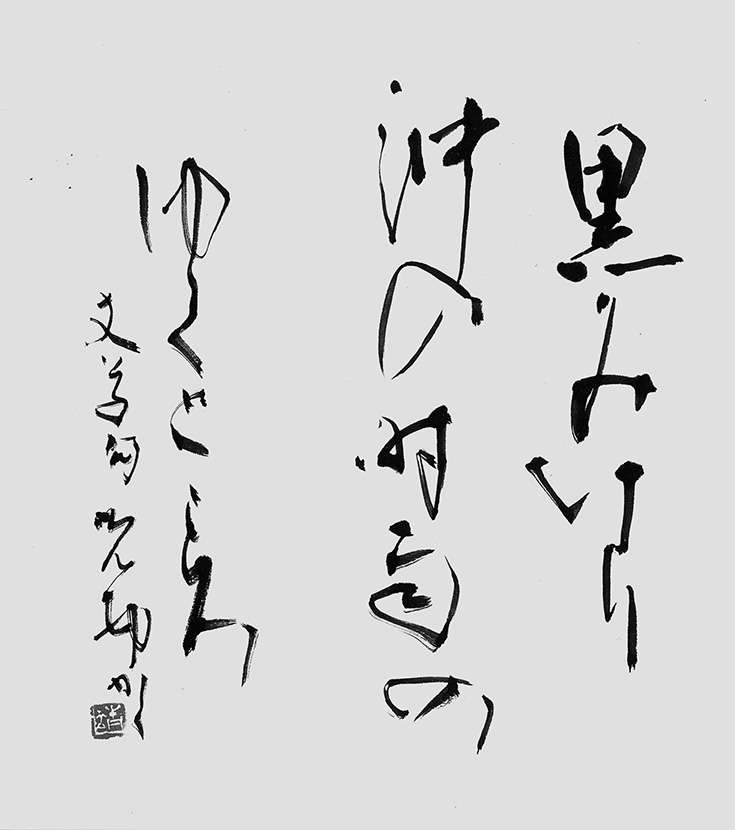 黒みけり
沖の時雨の
ゆくところ
丈草句